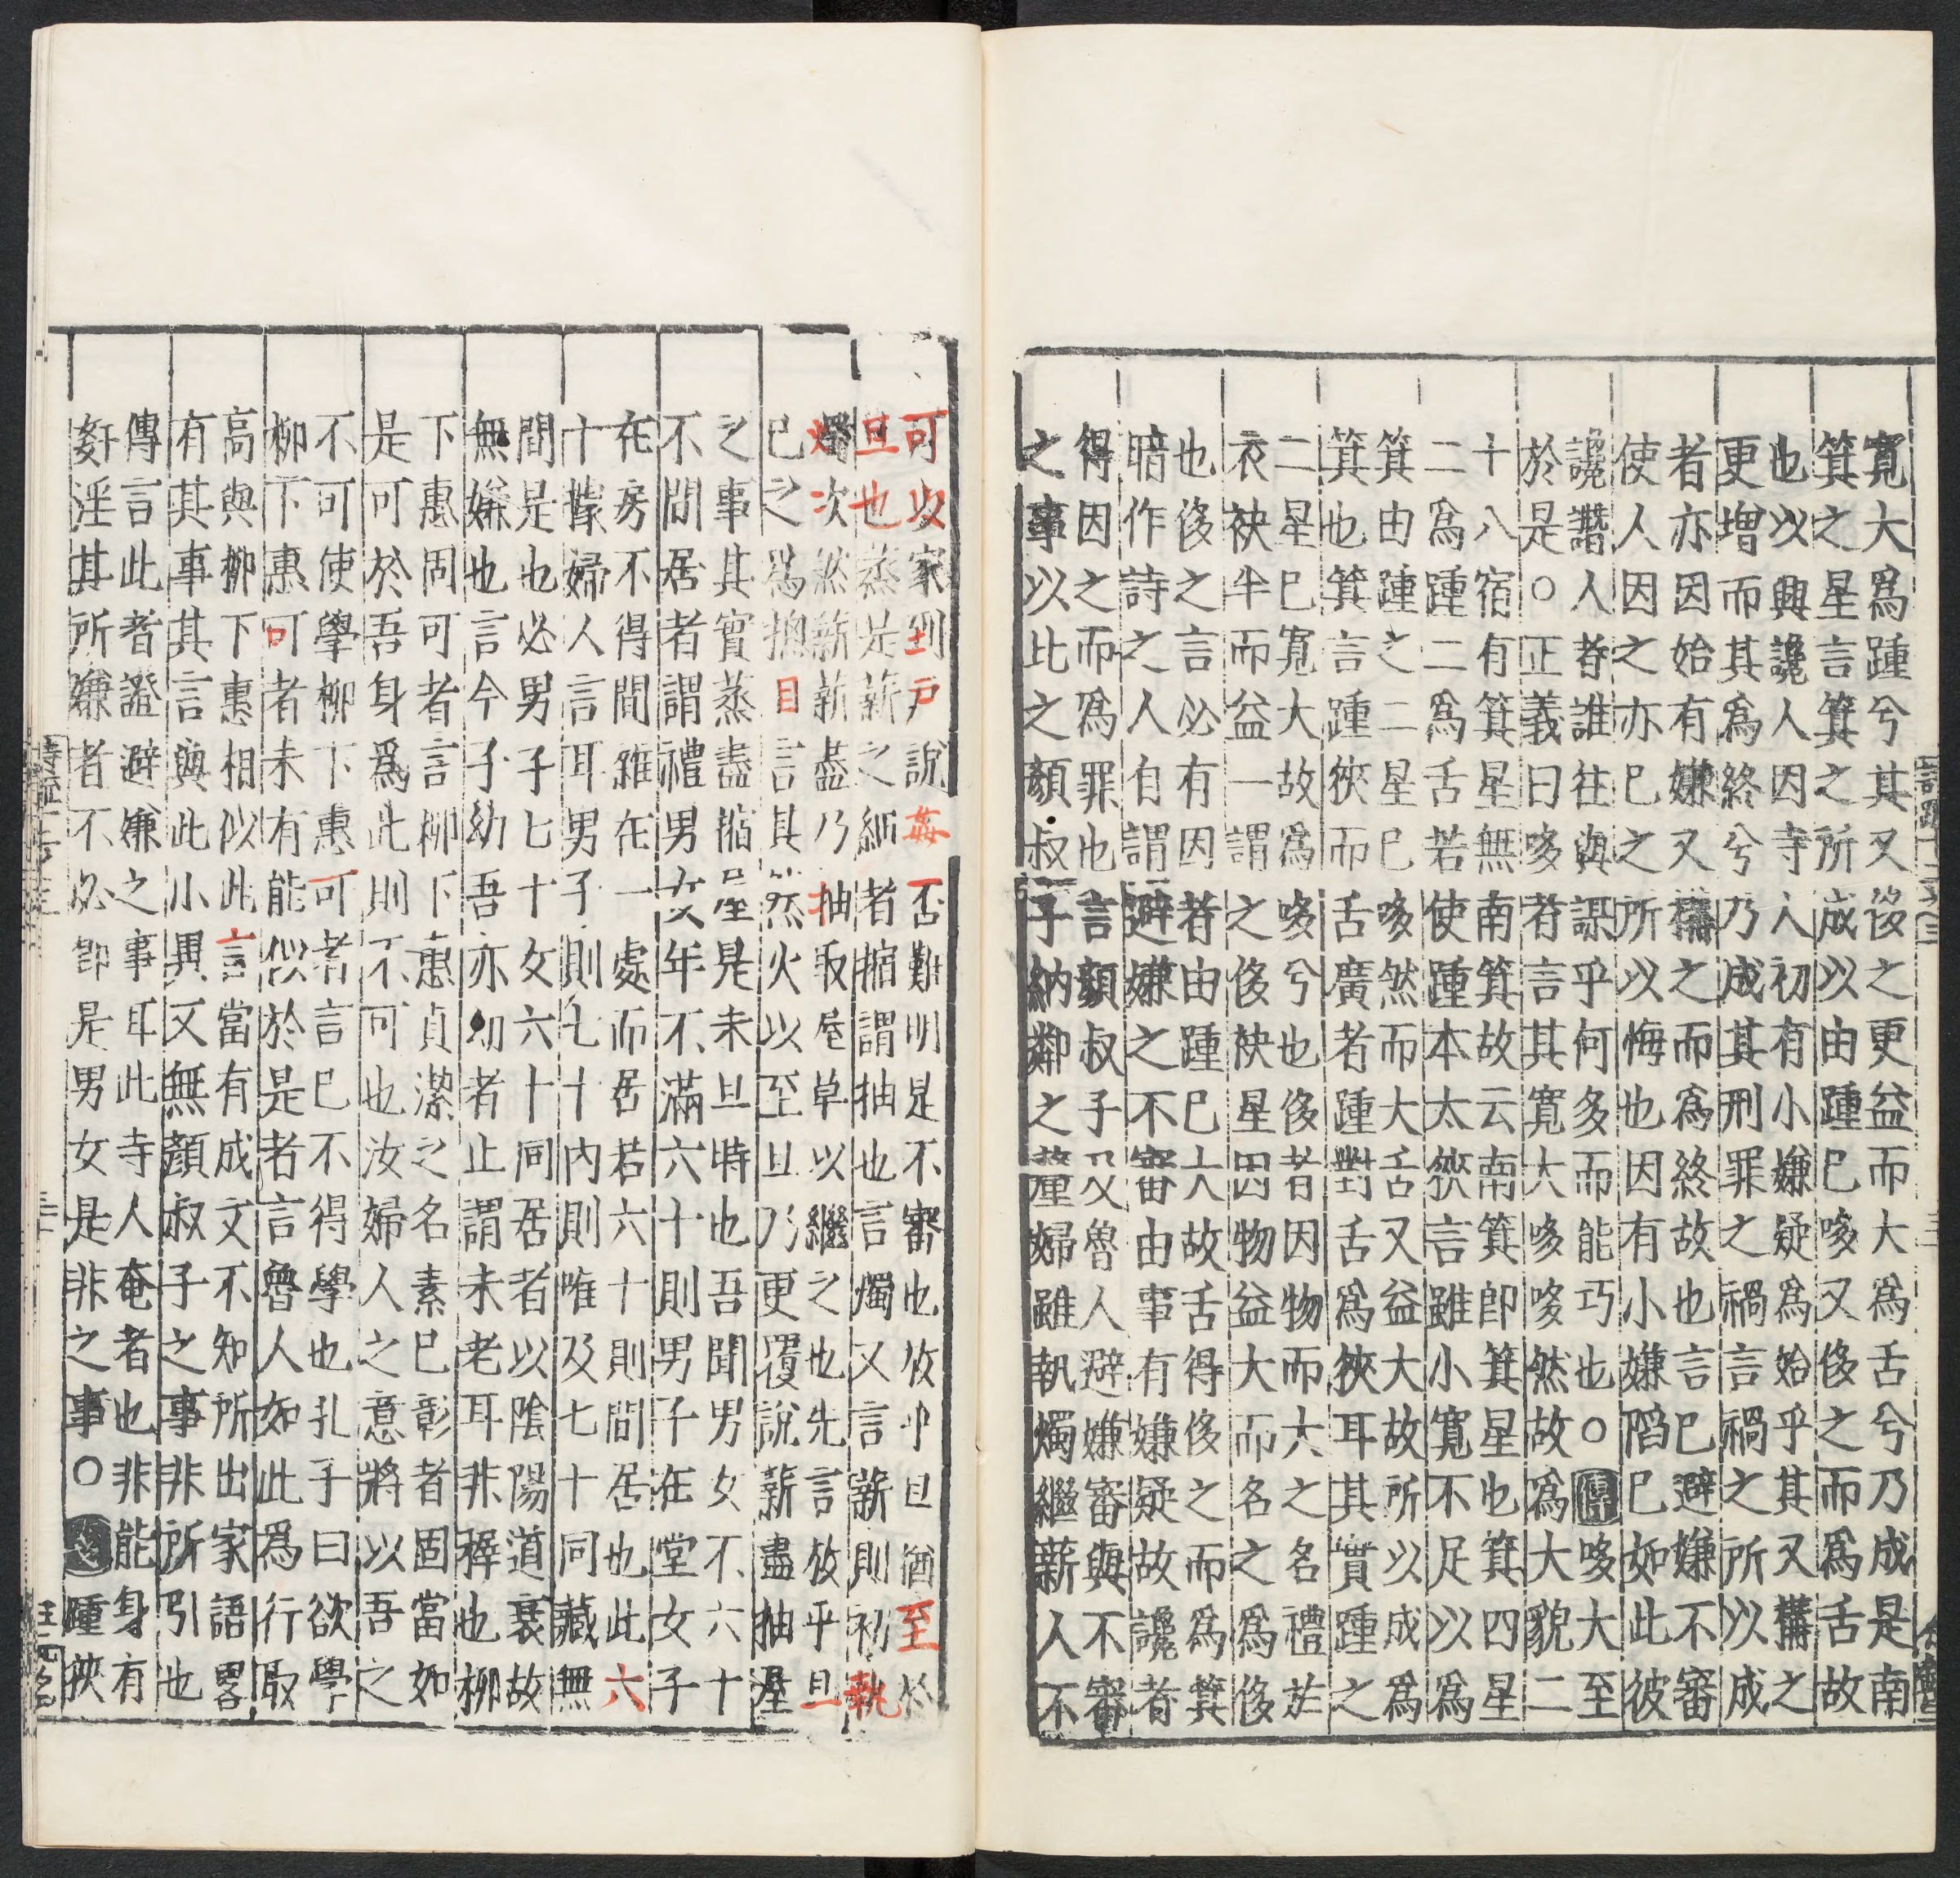 寬大爲踵兮其又侈之更益而大爲舌兮乃成是南
箕之星言箕之所成以由踵已哆又侈之而爲舌故
也以興讒人因寺人初有小嫌疑爲始乎其又構之
更增而其爲終兮乃成其刑罪之禍言禍之所以成
者亦因始有嫌又構之而爲終故也言已避嫌不審
使人因之亦已之所以悔也因有小嫌䧟已如此彼
讒譖人者誰往與謀乎何多而能巧也○傳哆大至
於是○正義曰哆者言其寬大哆哆然故爲大貌二
十八宿有箕星無南箕故云南箕卽箕星也箕四星
二爲踵二爲舌若使踵本太狹言雖小寬不足以爲
箕由踵之二星已哆然而大舌又益大故所以成爲
箕也箕言踵狹而舌廣者踵對舌爲狹耳其實踵之
二星已寬大故爲哆兮也侈者因物而大之名禮於
衣袂半而益一謂之侈袂星因物益大而名之爲侈
也侈之言必有因者由踵已大故舌得侈之而爲箕
暗作詩之人自謂避嫌之不審由事有嫌疑故讒者
得因之而爲罪也言顔叔子及魯人避嫌審與不審
之事以此之顔叔子納鄰之釐婦雖執燭繼薪人不
可以家到戸說姦否難明是不審也放乎旦猶至於
旦也蒸是薪之細者縮謂抽也言燭又言薪則初執
燭次然薪薪盡乃抽取屋草以繼之也先言放乎旦
已之爲揔目言其然火以至旦乃更覆說薪盡抽屋
之事其實蒸盡縮屋是未旦時也吾聞男女不六十
不間居者謂禮男女年不滿六十則男子在堂女子
在房不得間雜在一處而居若六十則間居也此六
十據婦人言耳男子則七十內則唯及七十同藏無
間是也必男子七十女六十同居者以陰陽道衰故
無嫌也言今子幼吾亦幼者止謂未老耳非稺也柳
下惠固可者言柳下惠貞潔之名素已彰者固當如
是可於吾身爲此則不可也汝婦人之意將以吾之
不可使學柳下惠可者言已不得學也孔子曰欲學
柳下惠可者未有能似於是者言魯人如此爲行取
高與柳下惠相似此言當有成文不知所出家語畧
有其事其言與此小異又無顔叔子之事非所引也
傳言此者證避嫌之事耳此寺人奄者也非能身有
姧淫其所嫌者不必卽是男女是非之事○箋踵狹